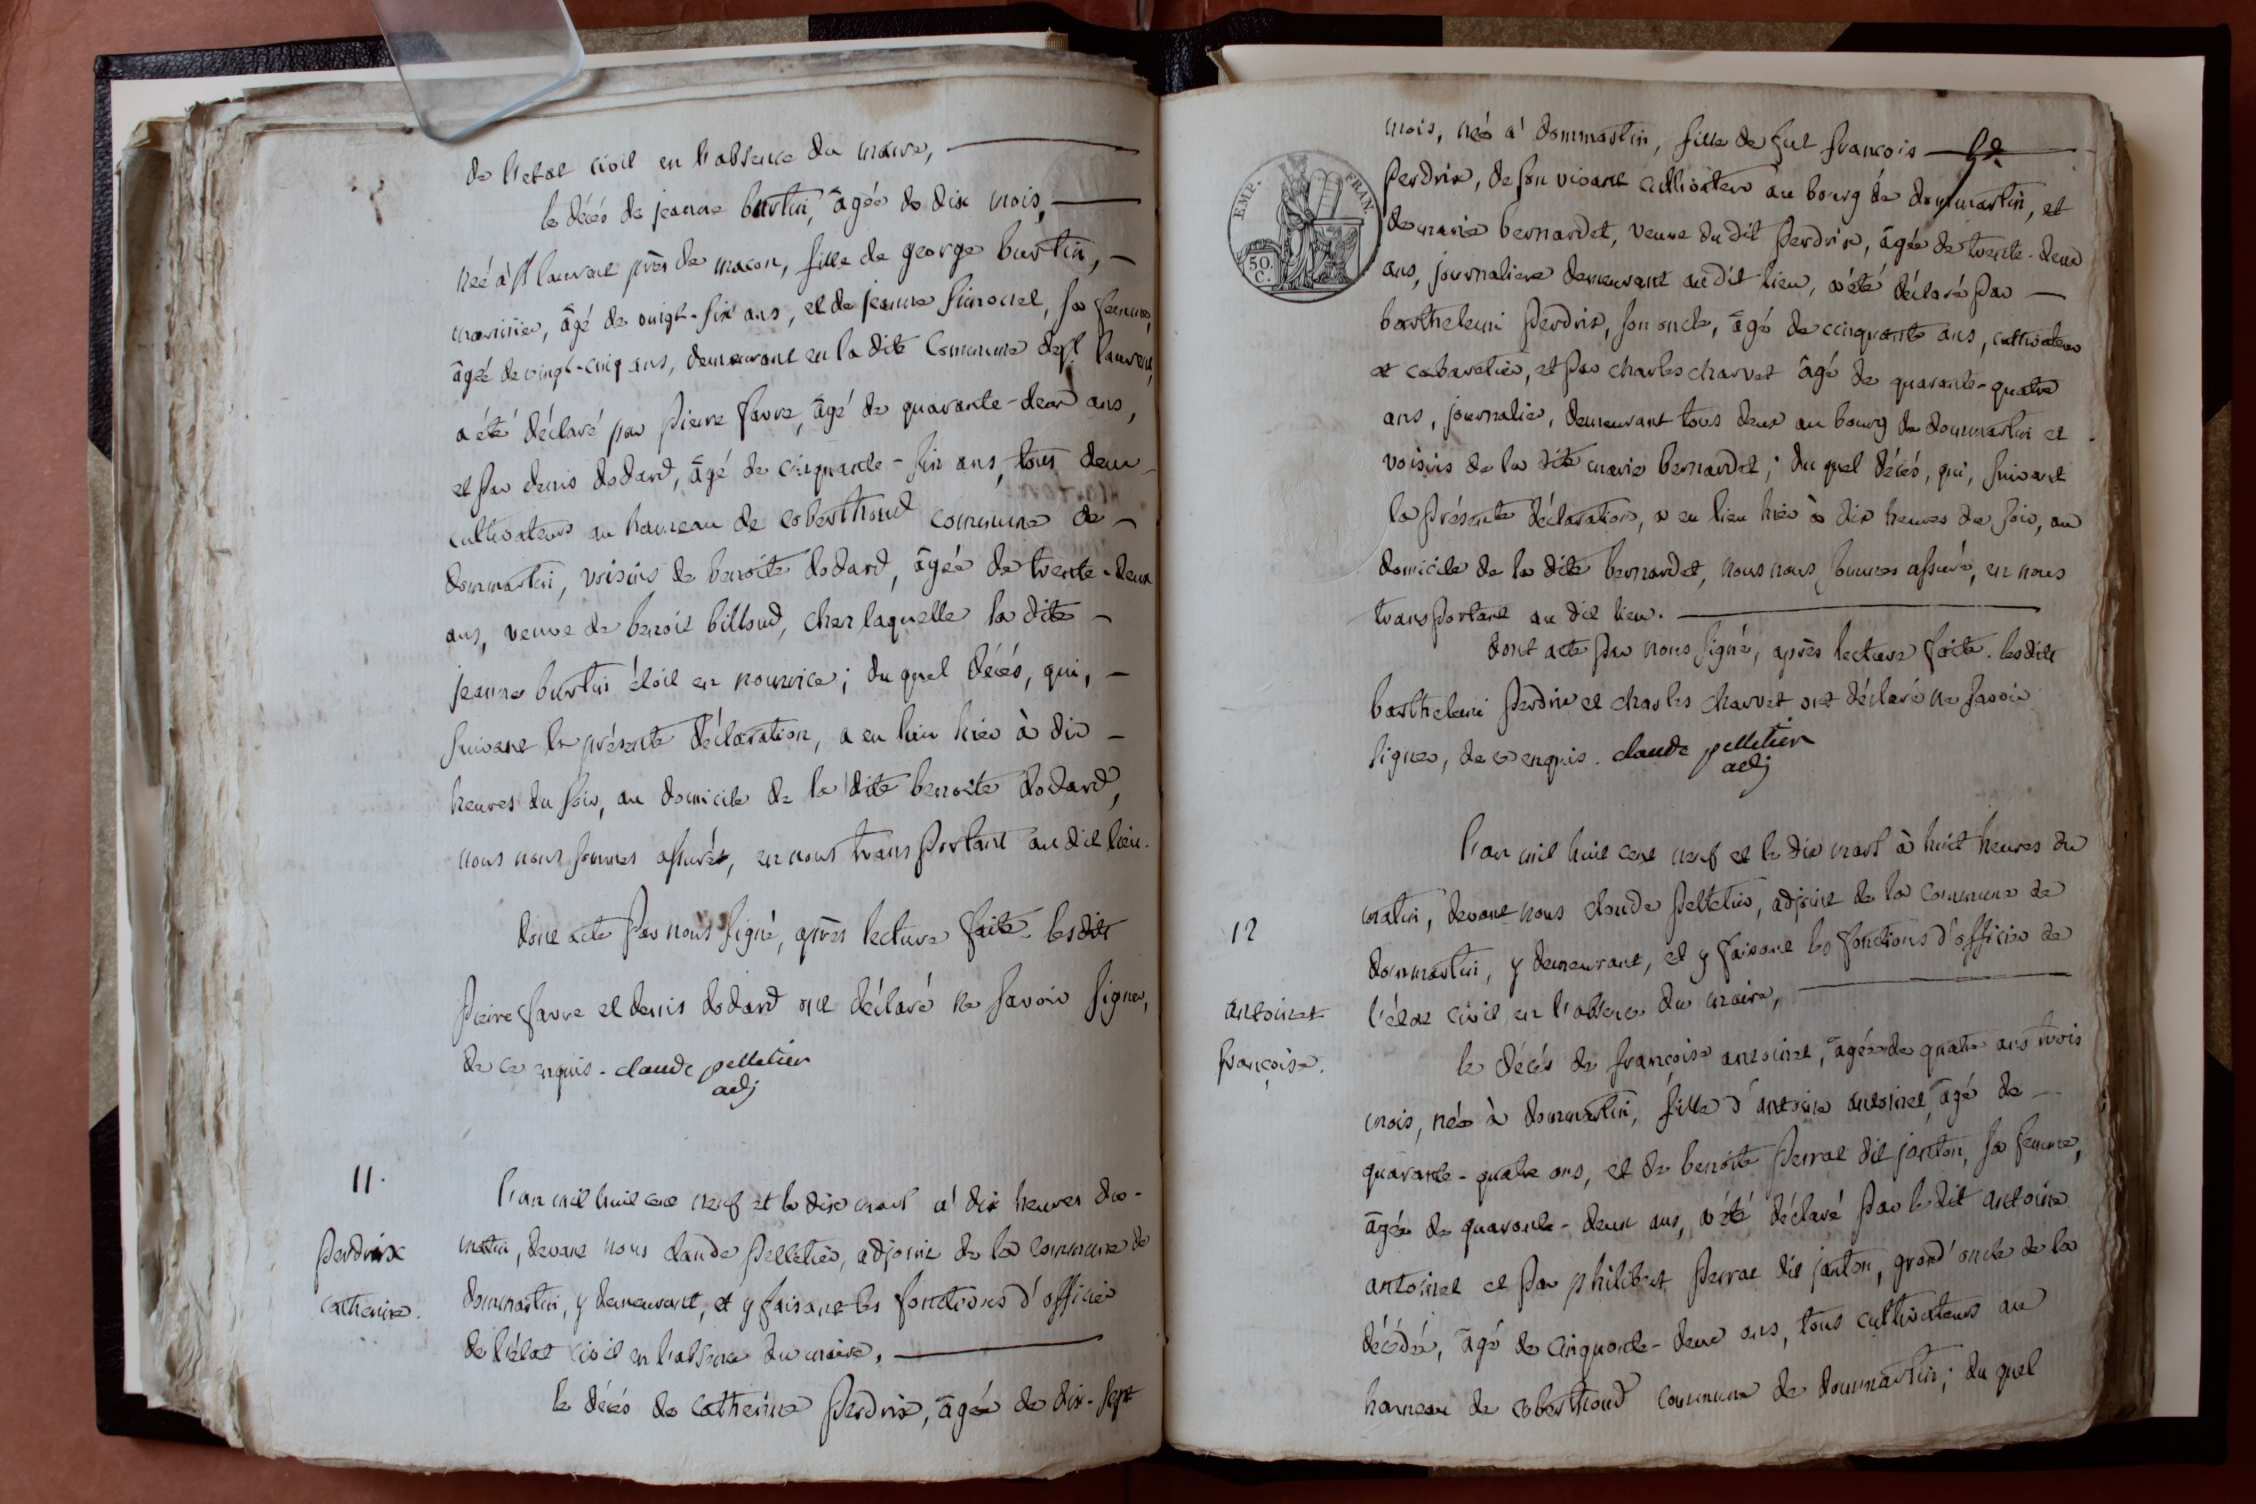 de l'etat civil en l'absence du maire,
le décés de jeanne burtin, âgée de dix mois,
neé à st laurent près de macon, fille de george burtin,
marinier, âgé de vingt-six ans, et de jeanne simonet, sa femme,
âgée de vingt-cinq ans, demeurant en la dite commune de st laurent,
a été déclaré par pierre favre, âgé de quarante-deux ans,
et par denis dodard, âgé de cinquante-six ans, tous deux
cultivateurs au hameau de coberthoud commune de
dommartin, voisins de benoite dodard, âgée de trente-deux
ans, veuve de benoit billoud, chez laquelle la dite
jeanne burtin étoit en nourrice ; du quel décés, qui,
suivant la présente déclaration, a eu lieu hier à dix
heures du soir, au domicile de la dite benoite dodard,
nous nous sommes assurés, en nous transportant au dit lieu.
dont acte par nous signé, après lecture faite. les dits
pierre favre et denis dodard ont déclaré ne savoir signer,
de ce enquis. claude pelletier
adj
11.
perdrix
catherine.
l'an mil huit cent neuf et le dix mars à dix heures du
matin, devant nous claude pelletier, adjoint de la commune de
dommartin, y demeurant, et y faisant les fonctions d'officier
de l'état civil en l'absence du maire,
le décés de catherine perdrix, âgée de dix-sept
EMP. FRAN.
50 C.
mois, née a' dommartin, fille de fut françois
perdrix, de son vivant cultivateur au bourg de dommartin, et
de marie bernardet, veuve du dit perdrix, âgée de trente-deux
ans, journaliere demeurant au dit lieu, a été déclaré par
barthelemi perdrix, son oncle, âgé de cinquante ans, cultivateur
et cabaretier, et par charles charvet âgé de quarante-quatre
ans, journalier, demeurant tous deux au bourg de dommartin et
voisins de la dite marie bernardet ; du quel décés, qui, suivant
la présente déclaration, a eu lieu hier à dix heures du soir, au
domicile de la dite bernardet, nous nous sommes assuré, en nous
transportant au dit lieu.
dont acte par nous signé, après lecture faite. les dits
barthelemi perdrix et charles charvet ont déclaré ne savoir
signer, de ce enquis. claude pelletier
adj
12
antoinet
françoise.
l'an mil huit cent neuf et le dix mars à huit heures du
matin, devant nous claude pelletier, adjoint de la commune de
dommartin, y demeurant, et y faisant les fonctions d'officier de
l'état civil en l'absence du maire,
le décés de françoise antoinet, âgée de quatre ans trois
mois, née à dommartin, fille d'antoine antoinet, âgé de
quarante-quatre ans, et de benoite perrat dit janton, sa femme,
âgée de quarante-deux ans, a été déclaré par le dit antoine
antoinet et par philibert perrat dit janton, grand'oncle de la
décédée, âgé de cinquante-deux ans, tous cultivateurs au
hameau de coberthoud commune de dommartin ; du quel